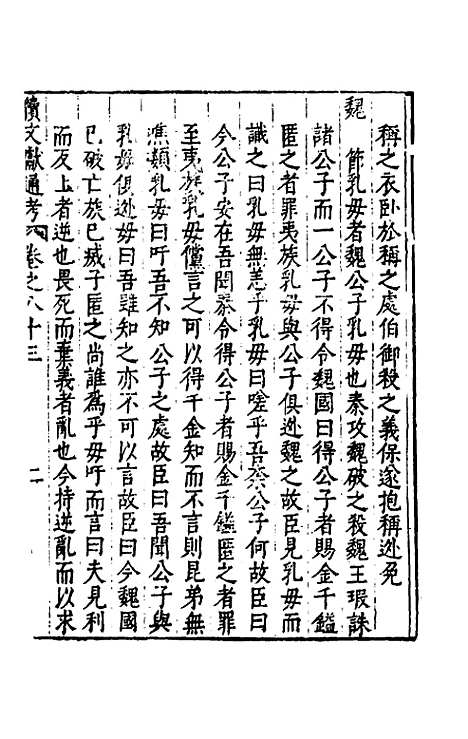 稱之衣卧於稱之處伯御殺之義保遂抱稱逃免
魏
節乳母者魏公子乳母也秦攻魏破之殺魏王瑕誅
諸公子而一公子不得令魏國曰得公子者賜金千鎰
匿之者罪夷族乳母與公子俱逃魏之故臣見乳母而
識之曰乳母無恙乎乳母曰嗟乎吾奈公子何故臣曰
今公子安在吾聞秦令得公子者賜金千鎰匿之者罪
至夷族乳母儻言之可以得千金知而不言則昆弟無
噍類乳母曰吁吾不知公子之處故臣曰吾聞公子與
乳母俱逃母曰吾雖知之亦不可以言故臣曰今魏國
已破亡族已滅子匿之尚誰為乎母吁而言曰夫見利
而反上者逆也畏死而棄義者亂也今持逆亂而以求
續文獻通考 卷之八十三 二